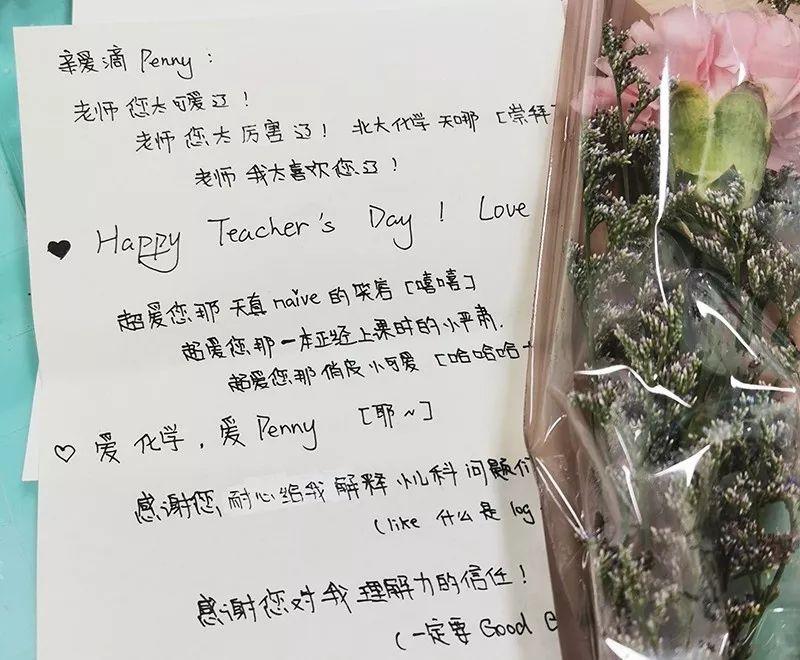 亲爱滴 Penny:
老师您太可爱了!
老师您太厉害了! 北大化学 天哪 [崇拜
老师我太喜欢您了!
♥ Happy Teacher's Day! Love
超爱您那天真naive的笑容[嘻嘻]
超爱您那一本正经上课时的小严肃.
超爱您那俏皮小可爱 [哈哈哈
♡ 爱化学,爱Penny [耶~]
感谢您,耐心给我解释小儿科问题们
(like 什么是log
感谢您对我理解力的信任!
(一定要Good